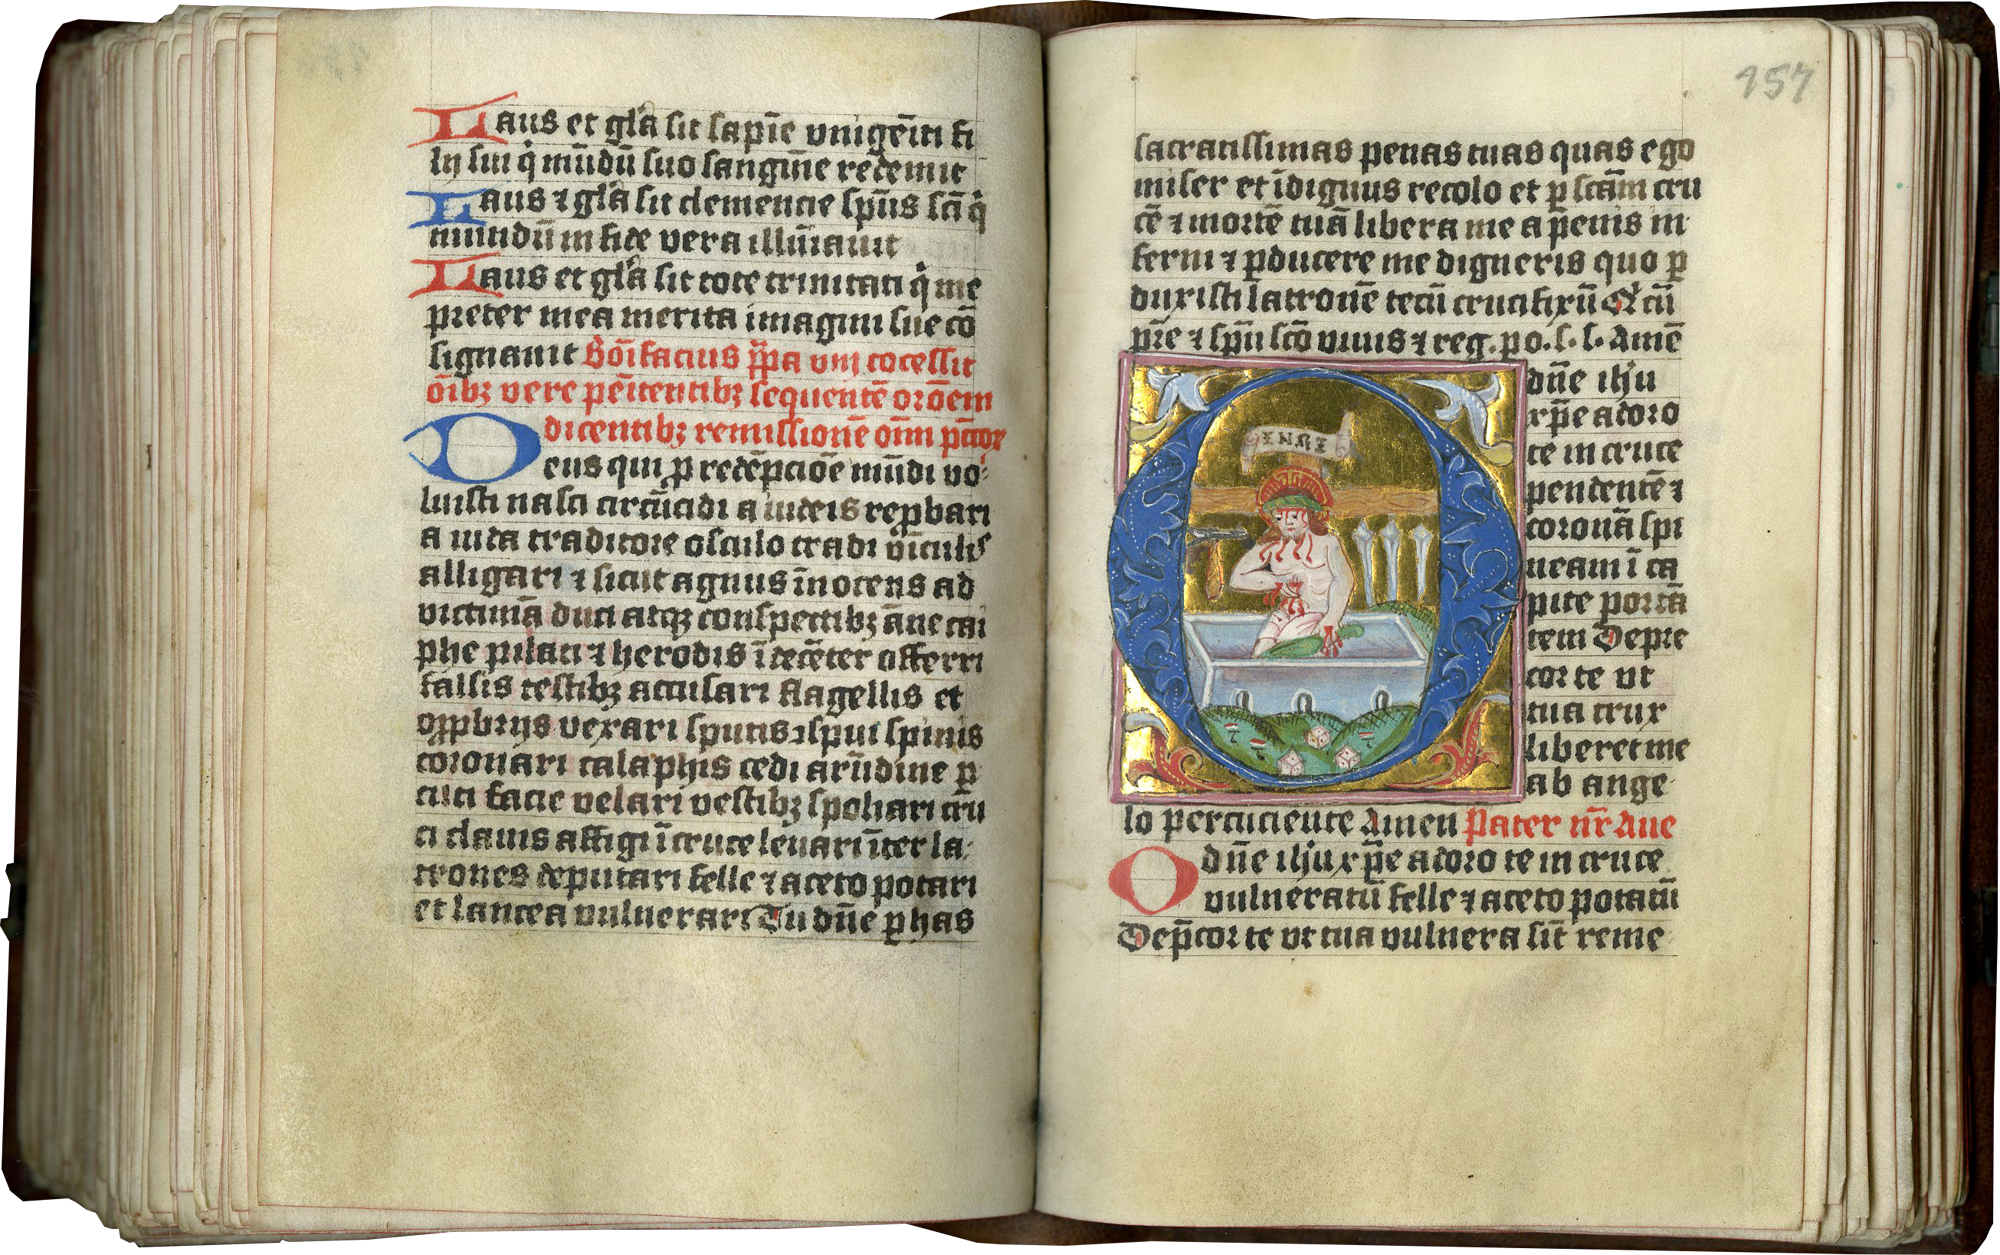 Laus et gl'a sit sapīe vnigēiti fi
lij sui q̇ mūdū suo sangīne redemit
Laus ⁊ gl'a sit clemencie sp̄us scī q̇
mundū in fide vera illūīauit
Laus et gl'a sit tote trinitati q̇ me
preter mea merita imagini sue cō
signauit Bōifacius p̄pa vnj cōcessit
oībꝫ vere pēitentibꝫ sequentē orōem
dicentibꝫ remissionē oīm pcc̄oꝝ
Deus qui ꝓ redēpcioē mūdi vo-
luisti nasci circūcidi a iudeis reꝓbari
a iuda traditore osculo tradi vīculis
alligari ⁊ sicut agnus īnocens ad
victimā duci atqꝫ conspectibꝫ āne cai
phe pilati ⁊ herodis īdecēter offerri
falsis testibꝫ accusari flagellis et
opꝓbrijs vexari sputis ↄspui spinis
coronari calaphis cedi arūdine ꝑ
cuti facie velari vestibꝫ spoliari cru
ci clauis affigi ī cruce leuari īter la-
trones deputari felle ⁊ aceto potari
et lancea vulnerari Tu dn̄e ꝑ has
157
sacratissimas penas tuas quas ego
miser et īdignus recolo et ꝑ scām cru
cē ⁊ mortē tuā libera me a penis in
ferni ⁊ ꝑducere me digneris quo ꝑ
duxisti latronē tecū crucifixū Qͥ cū
pr̄e ⁊ sp̄u scō viuis ⁊ reg. ꝑ o. s. s. Amē
O dn̄e ih̄u
xp̄e adoro
te in cruce
pendentē ⁊
coronā spi
neam ī ca
pite portā
tem Depre
cor te vt
tua crux
liberet me
ab ange
lo percuciente Amen Pater nr̄ Aue
O dn̄e ih̄u xp̄e adoro te in cruce
vulneratū felle ⁊ aceto potatū
Dep̄cor te vt tua vulnera sīt reme